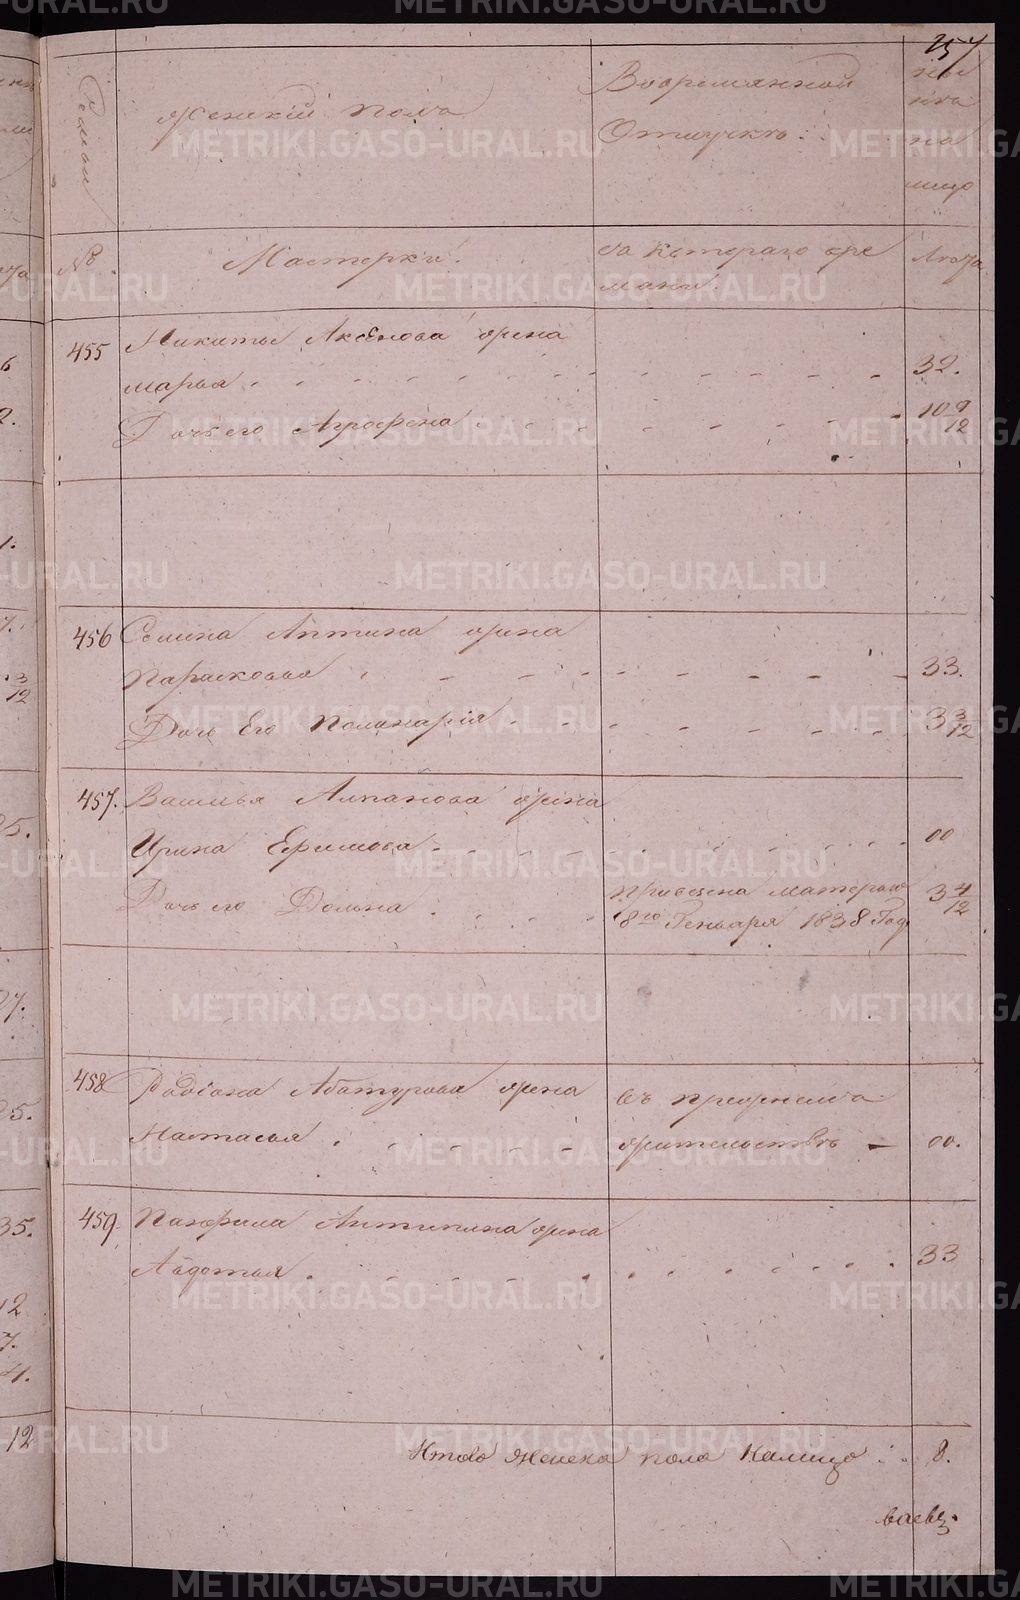 257
Семьи
Женскій полъ
Во временной
Отлучкѣ
ны
нѣ
на
лицо
№
Мастерки
съ котораго вре
мени
лѣта
455
Никиты Аксенова жена
марья
32.
Дочь его Агрофена
10 9/12
456
Семина Антина жена
парасковья
33.
Дочь Его Полинарія
3 3/12
457.
Василья Алпанова жена
Ирина Ефимова
00
Дочь его
приведена матерью
3 4/12
8го Геньваря 1838 Год
458
Родіона Абатурова жена
въ
Настасья
жительствѣ
00.
459.
Панфила Антипина жена
Авдотья
33
Итого женска пола налицо
8.
METRIKI.GASO-URAL.RU